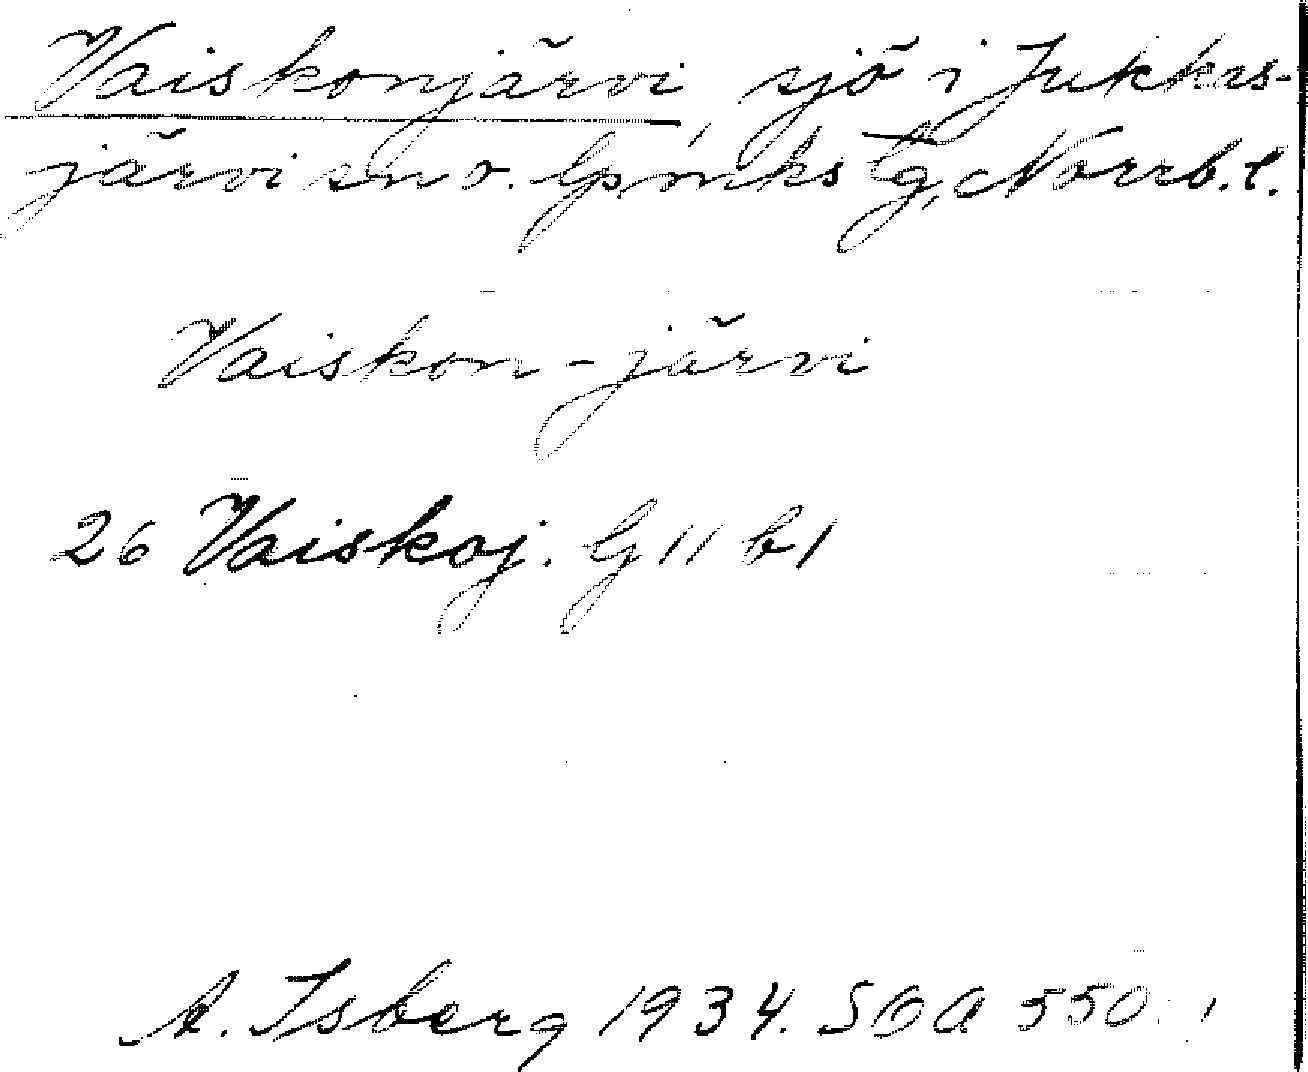 Vaiskonjärvi, sjö i Jukkas-
järvi sn o. lpmks tg, Norrb. l.
Vaiskon-järvi
26 Vaiskoj. G 11 b1
A. Isberg 1934. SOA 550:1